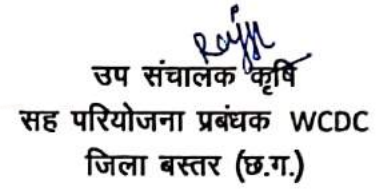 उप संचालक कृषि
सह परियोजना प्रबंधक WCDC
जिला बस्तर (छ.ग.)